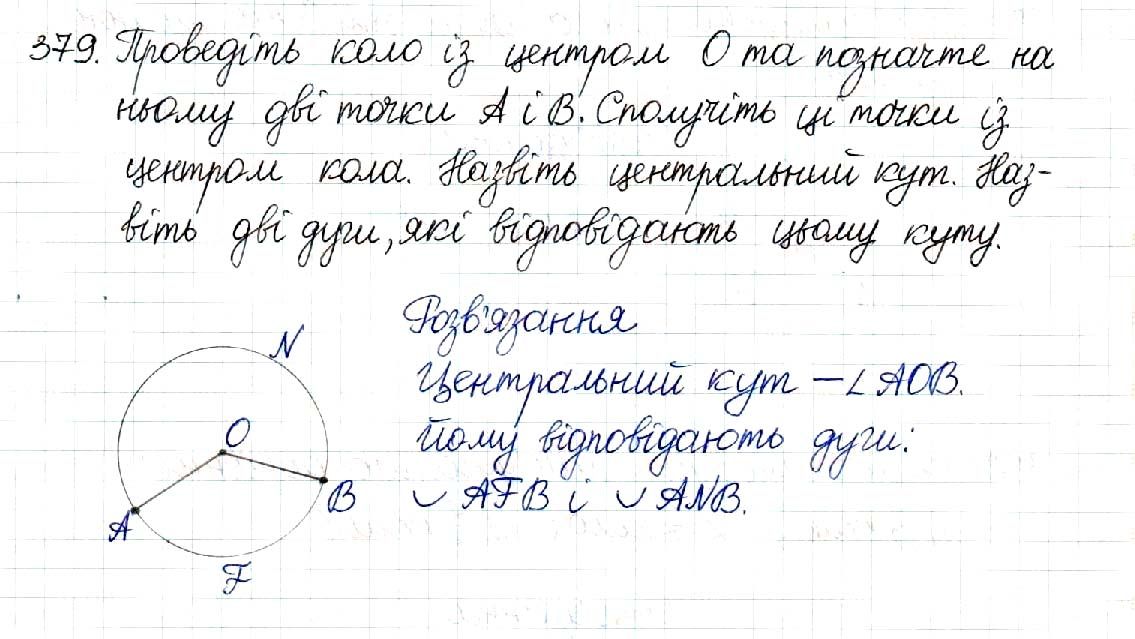 379. Проведіть коло із центром О та позначте на
ньому дві точки А і В. Сполучіть ці точки із
центром кола. Назвіть центральний кут. Наз-
віть дві дуги, які відповідають цьому куту.
Розв'язання
Центральний кут – ∠AOB.
Йому відповідають дуги:
◡ AFB і ◡ ANB.
N
O
B
A
F